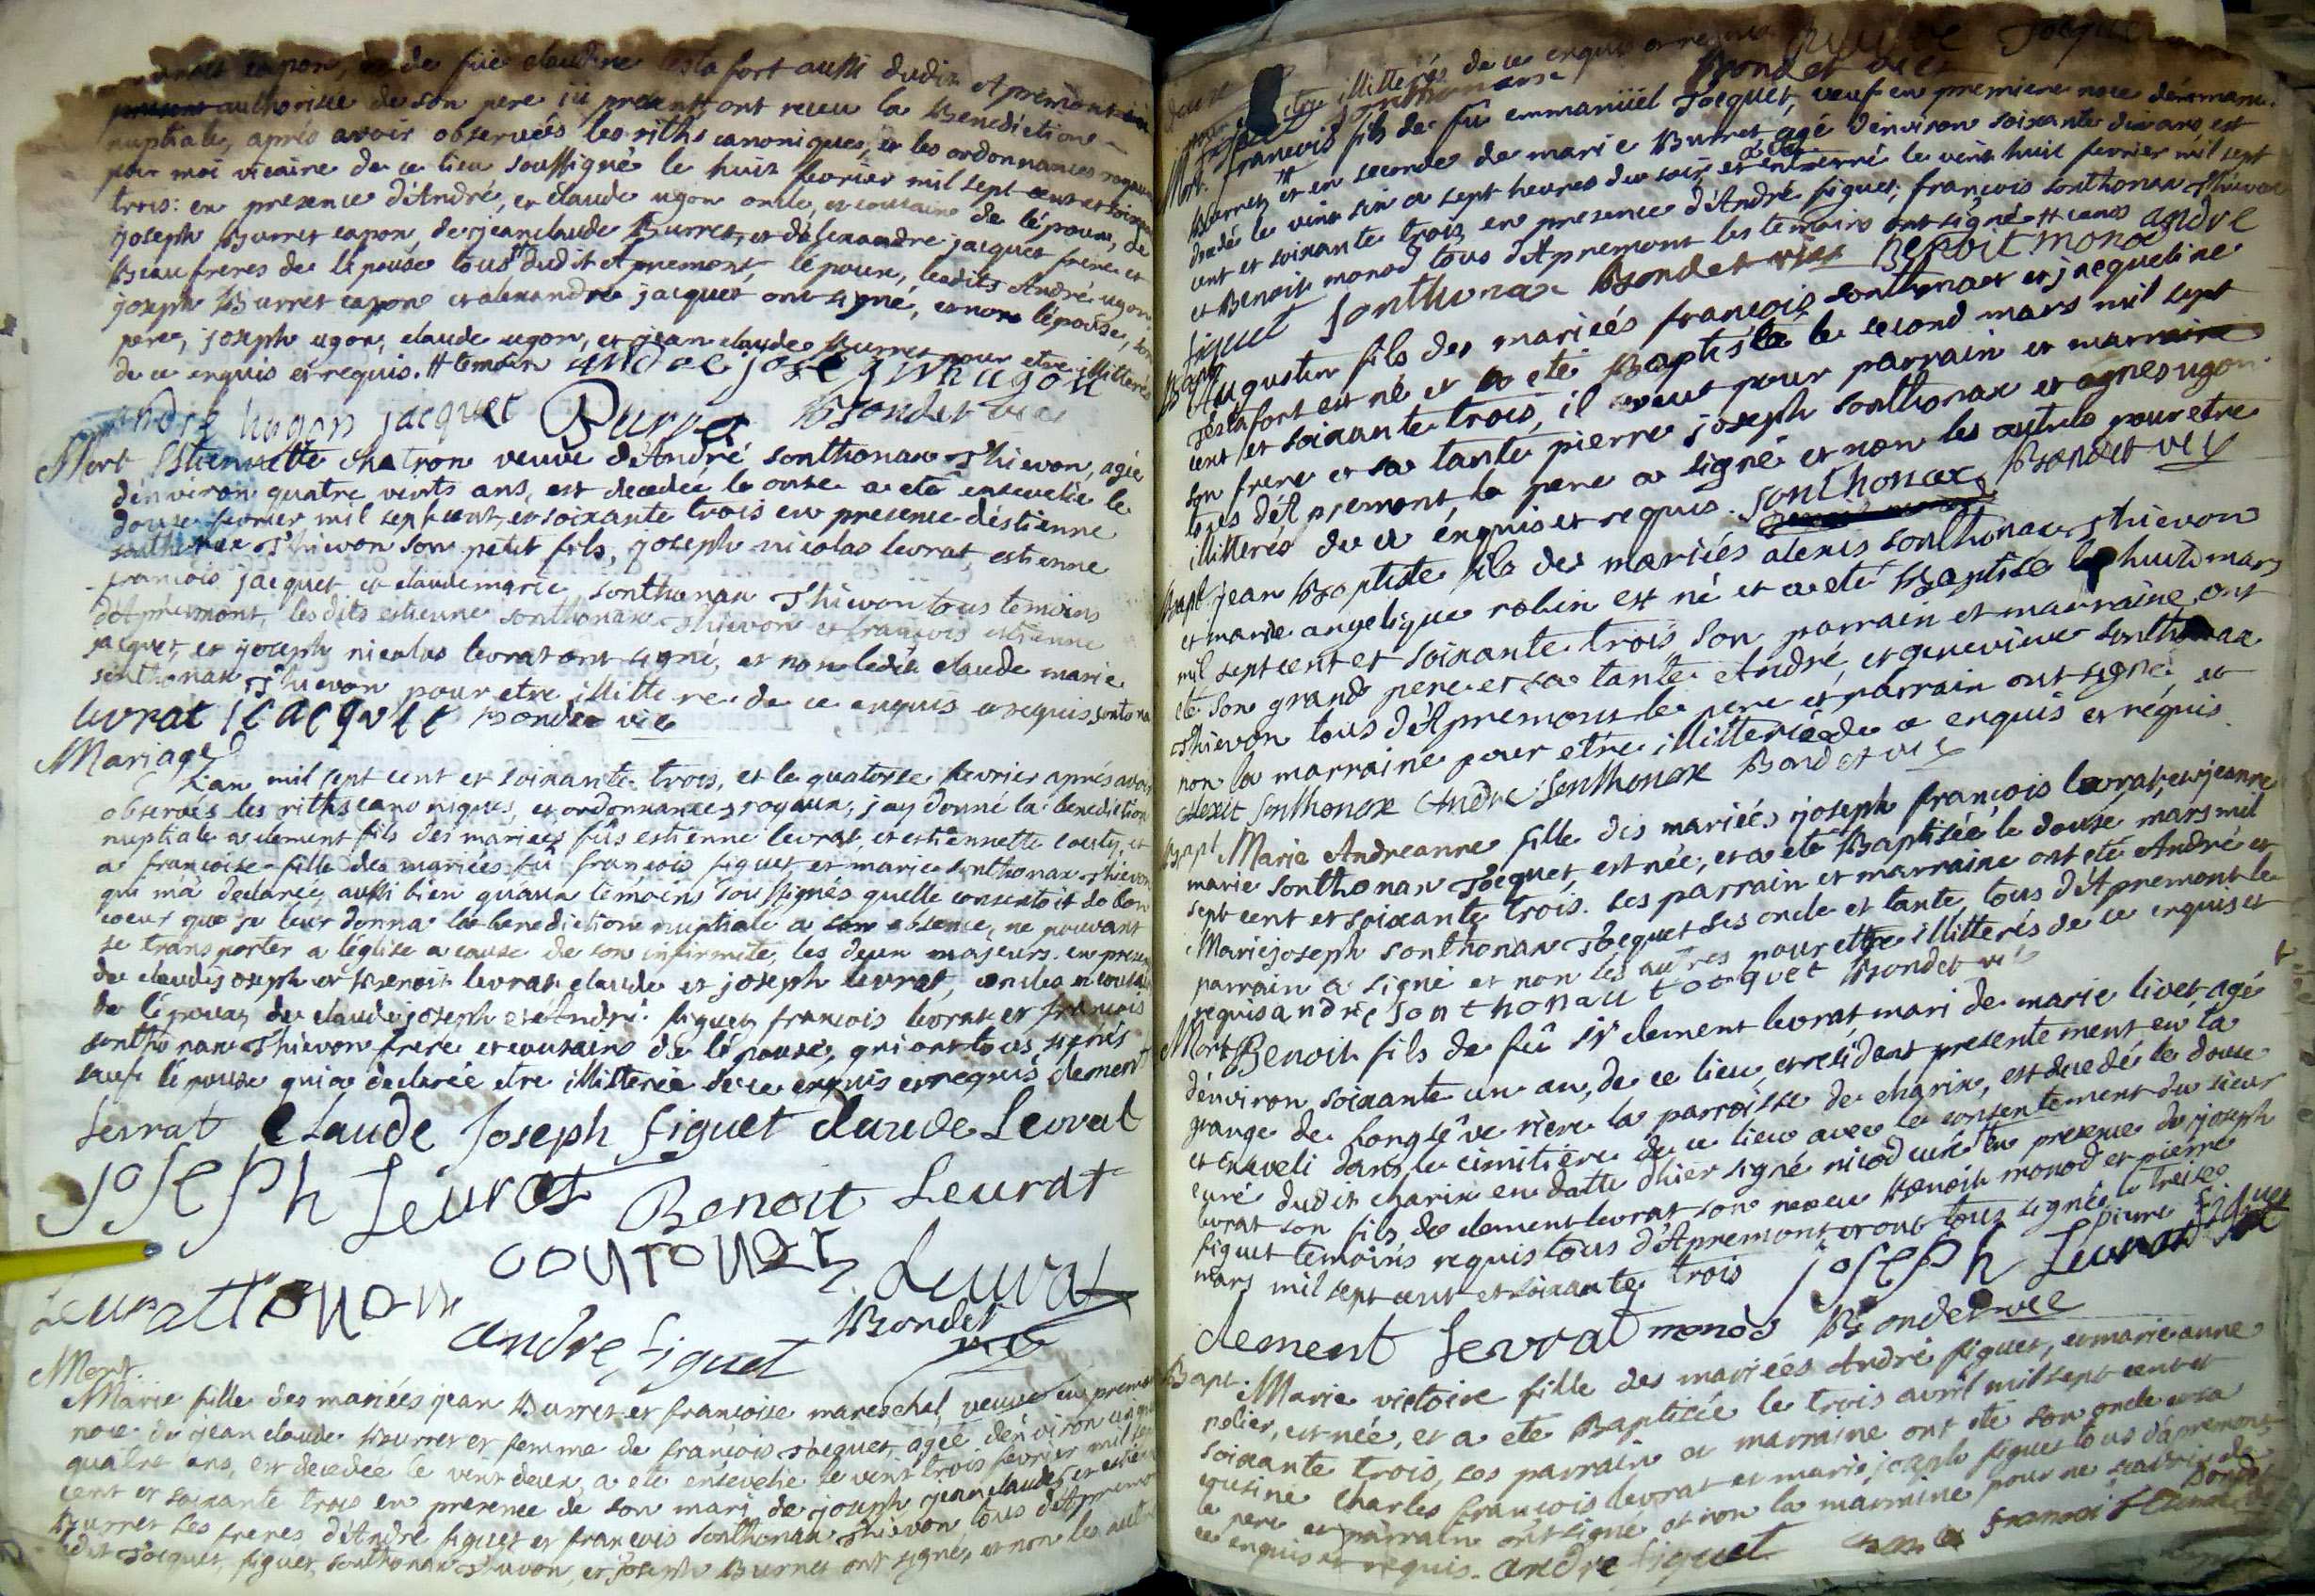 capon, de füe claudine Testafort aussi dudit Apremont
authorisée de son pere ici present, ont receu la Benediction
nuptiale, aprés avoir observées les riths canoniques, et les ordonnances royaux
par moi vicaire de ce lieu soussigné le huit fevrier mil sept cent et soixante
trois: en presence d'André, et claude ugon oncle, et cousain de l'époux, de
joseph Burret capon, de jean claude Burret, et d'alexandre jacquet frere et
Beaufreres de l'épouse tous dudit Apremont, l'époux, lesdits André ugon
joseph Burret capon et alexandre jacquet ont signé, et non l'épouse, son
pere, joseph ugon, claude ugon, et jean claude Burret pour etre illitterés
de ce enquis et requis. # temoin andre joseph hugon
andre hugon jacquet Burret Bondet vic
Mort Estiennette chatron veuve d'André sonthonax Thievon, agée
d'environ quatre vints ans, est decedée le onze a eté ensevelie le
douze fevrier mil sept cent, et soixante trois en presence d'éstienne
sonthonax Thievon son petit fils, joseph nicolas levrat, estienne
francois jacquet et claude marie sonthonax Thievon tous temoins
d'Apremont, lesdits estienne sonthonax Thievon et françois estienne
jacquet, et joseph nicolas levrat ont signé, et non ledit claude marie
sonthonax Thievon pour etre illitteré de ce enquis et requis
levrat jacquet Bondet vic
Mariage
L'an mil sept cent et soixante trois, et le quatorse fevrier aprés avoir
observés les riths canoniques, et ordonnances royaux, j'ay donné la benediction
nuptiale a clement fils des mariées fûs estienne levrat, et estiennette
a françoise fille des mariées fû françois figuet, et marie sonthonax Thievon
qui m'a declarée aussi bien qu'aux temoins soussignés quelle consentoit de bon
coeur que je leur donna la benediction nuptiale a son absence, ne pouvant
se transporter a l'église a cause de son infirmité, les deux majeurs. en presence
de claude joseph et Benoit levrat, claude et joseph levrat, oncles et cousains
de l'époux, de claude joseph et André figuet, francois levrat et francois
sonthonax Thievon frere et cousains de l'épouse, qui ont tous signés
sauf l'épouse qui a declarée etre illitterée de ce enquis et requis clement
Levrat Claude Joseph figuet claude Levrat
joseph Levrat Benoit Levrat
Levrat Levrat
andre figuet Bondet vic
Mort.
Marie fille des mariées jean Burret et françoise mareschal, veuve en premiere
noce de jean claude Burret et femme de françois Tocquet, agée d'environ
quatre ans, est decedée le vint deux, a eté ensevelie le vint trois fevrier mil sept
cent et soixante trois en presence de son mari, de joseph, jean claude, et
Burret ses freres d'André figuet et françois sonthonax Thievon, tous d'Apremont
ledit Tocquet, figuet, sonthonax Thievon, et joseph Burret ont signé, et non les autres
illitterés de ce enquis et requis
Tocquet sonthonax Bondet vic
Mort. François fils de fû emmanüel Tocquet, veuf en premiere noce
Burret, et en seconde de marie Burret, agé d'environ soixante dix ans, est
decedé le vint six a sept heures du soir, et a eté enterré le vint huit fevrier mil sept
cent et soixante trois, en presence d'André figuet, françois sonthonax Thievon
et Benoit monod tous d'Apremont les temoins ont signé andre
figuet Sonthonax Bondet vic Benoit monod
Bapt. Augustin fils des mariées françois sonthonax et jacqueline
Testafort est né et a eté Baptisée le second mars mil sept
cent et soixante trois, il a eut pour parrain et marraine
son frere et sa tante pierre joseph sonthonax et agnes ugon
tous d'Apremont, le pere a signé et non les autres pour etre
illitterés de ce enquis et requis. Sonthonax Bondet vic
Bapt. jean Baptiste fils des mariées alexis sonthonax Thievon
et marie angelique robin est né et a eté Baptisé le huit mars
mil sept cent et soixante trois, son parrain et marraine ont
eté son grand pere et sa tante André, et genevieve sonthonax
Thievon tous d'Apremont le pere et parrain ont signé, et
non la marraine pour etre illitterée de ce enquis et requis.
Alexit Sonthonax Andre Sonthonax Bondet vic
Bapt. Marie Andreanne fille des mariées joseph francois levrat, et jeanne
marie sonthonax Tocquet, est née, et a eté Baptisée le douse mars mil
sept cent et soixante trois. ses parrain et marraine ont eté André et
Marie joseph sonthonax Tocquet ses oncle et tante, tous d'Apremont le
parrain a signé et non les autres pour etre illitterés de ce enquis et
requis andre Sonthonax tocquet Bondet vic
Mort Benoit fils de fû sr clement levrat, mari de marie livet, agé
d'environ soixante un an, de ce lieu, et resident presentement en la
grange de Longsève rière la parroisse de charix, est decedé le douse
et enseveli dans le cimitière de ce lieu avec le consentement du sieur
curé dudit charix en datte d'hier signé nicod curé en presence de joseph
levrat son fils, de clement levrat son neveu Benoit monod et pierre
figuet temoins requis tous d'Apremont et ont tous signés le treise
mars mil sept cent et soixante trois joseph Levrat pierre figuet
clement Levrat monod Bondet vic
Bapt. Marie victoire fille des mariées André figuet, et marie anne
polier, est née, et a eté Baptisée le trois avril mil sept cent et
soixante trois, ses parrain et marraine ont eté son oncle et sa
cousine charles françois levrat et marie joseph figuet tous d'apremont,
le pere et parrain ont signé et non la marraine pour ne sçavoir de
ce enquis et requis. andre figuet Bondet